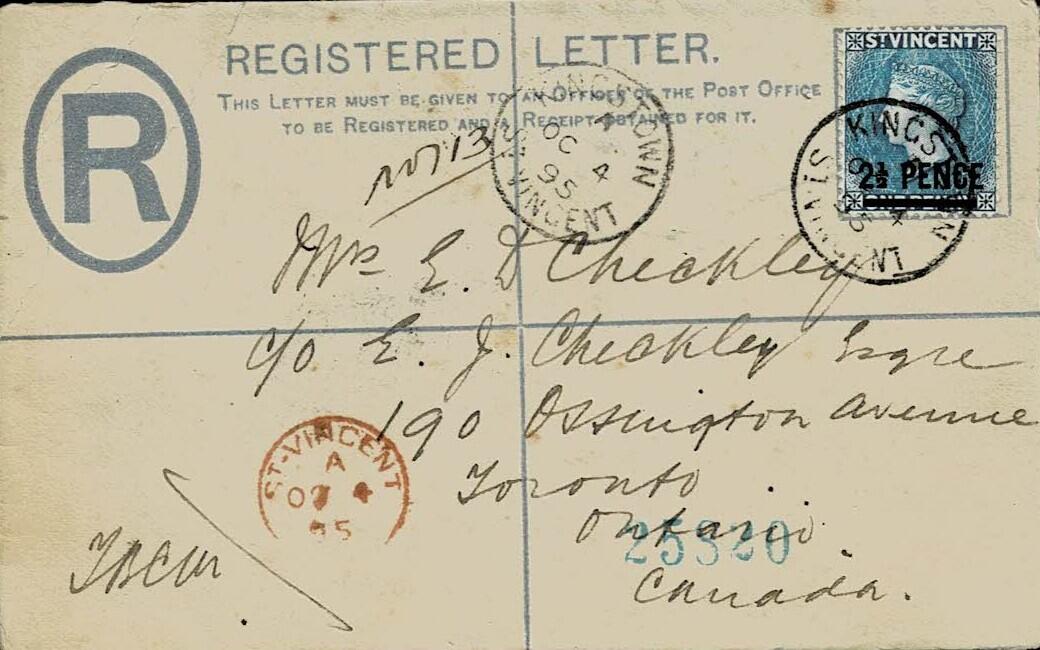 REGISTERED LETTER.
THIS LETTER MUST BE GIVEN TO AN OFFICER OF THE POST OFFICE
TO BE REGISTERED AND A RECEIPT OBTAINED FOR IT.
R
ST VINCENT
2½ PENCE
ONE PENNY
KINGSTOWN
A
OC 4
95
ST VINCENT
KINGSTOWN
A
OC 4
95
ST VINCENT
No 713
Mrs E. D Checkley
c/o E. J. Checkley Esqre
190 Ossington Avenue
Toronto
Ontario.
Canada.
ST-VINCENT
A
OC 4
95
25320